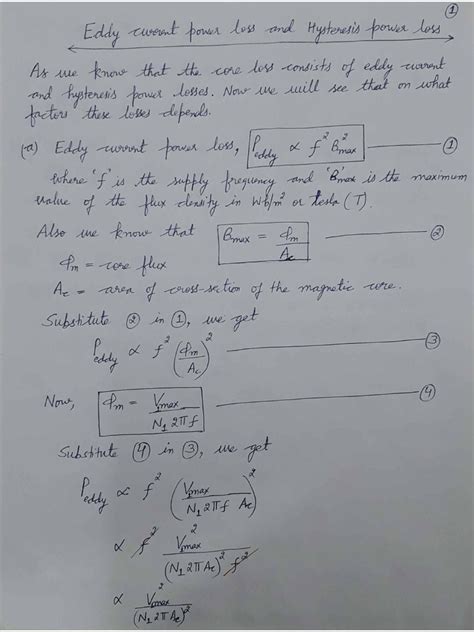 ①
Eddy current power loss and Hysteresis power loss
As we know that the core loss consists of eddy current
and hysteresis power losses. Now we will see that on what
factors these losses depends.
(a) Eddy current power loss, P_eddy ∝ f² B²_max ①
where 'f' is the supply frequency and 'B_max' is the maximum
value of the flux density in Wb/m² or tesla (T).
Also we know that B_max = Φ_m / A_c ②
Φ_m = core flux
A_c = area of cross-section of the magnetic core.
Substitute ② in ①, we get
P_eddy ∝ f² (Φ_m / A_c)² ③
Now, Φ_m = V_max / N₁ 2π f ④
Substitute ④ in ③, we get
P_eddy ∝ f² (V_max / N₁ 2π f A_c)²
∝ f² V²_max / (N₁ 2π A_c)² f²
∝ V²_max / (N₁ 2π A_c)²